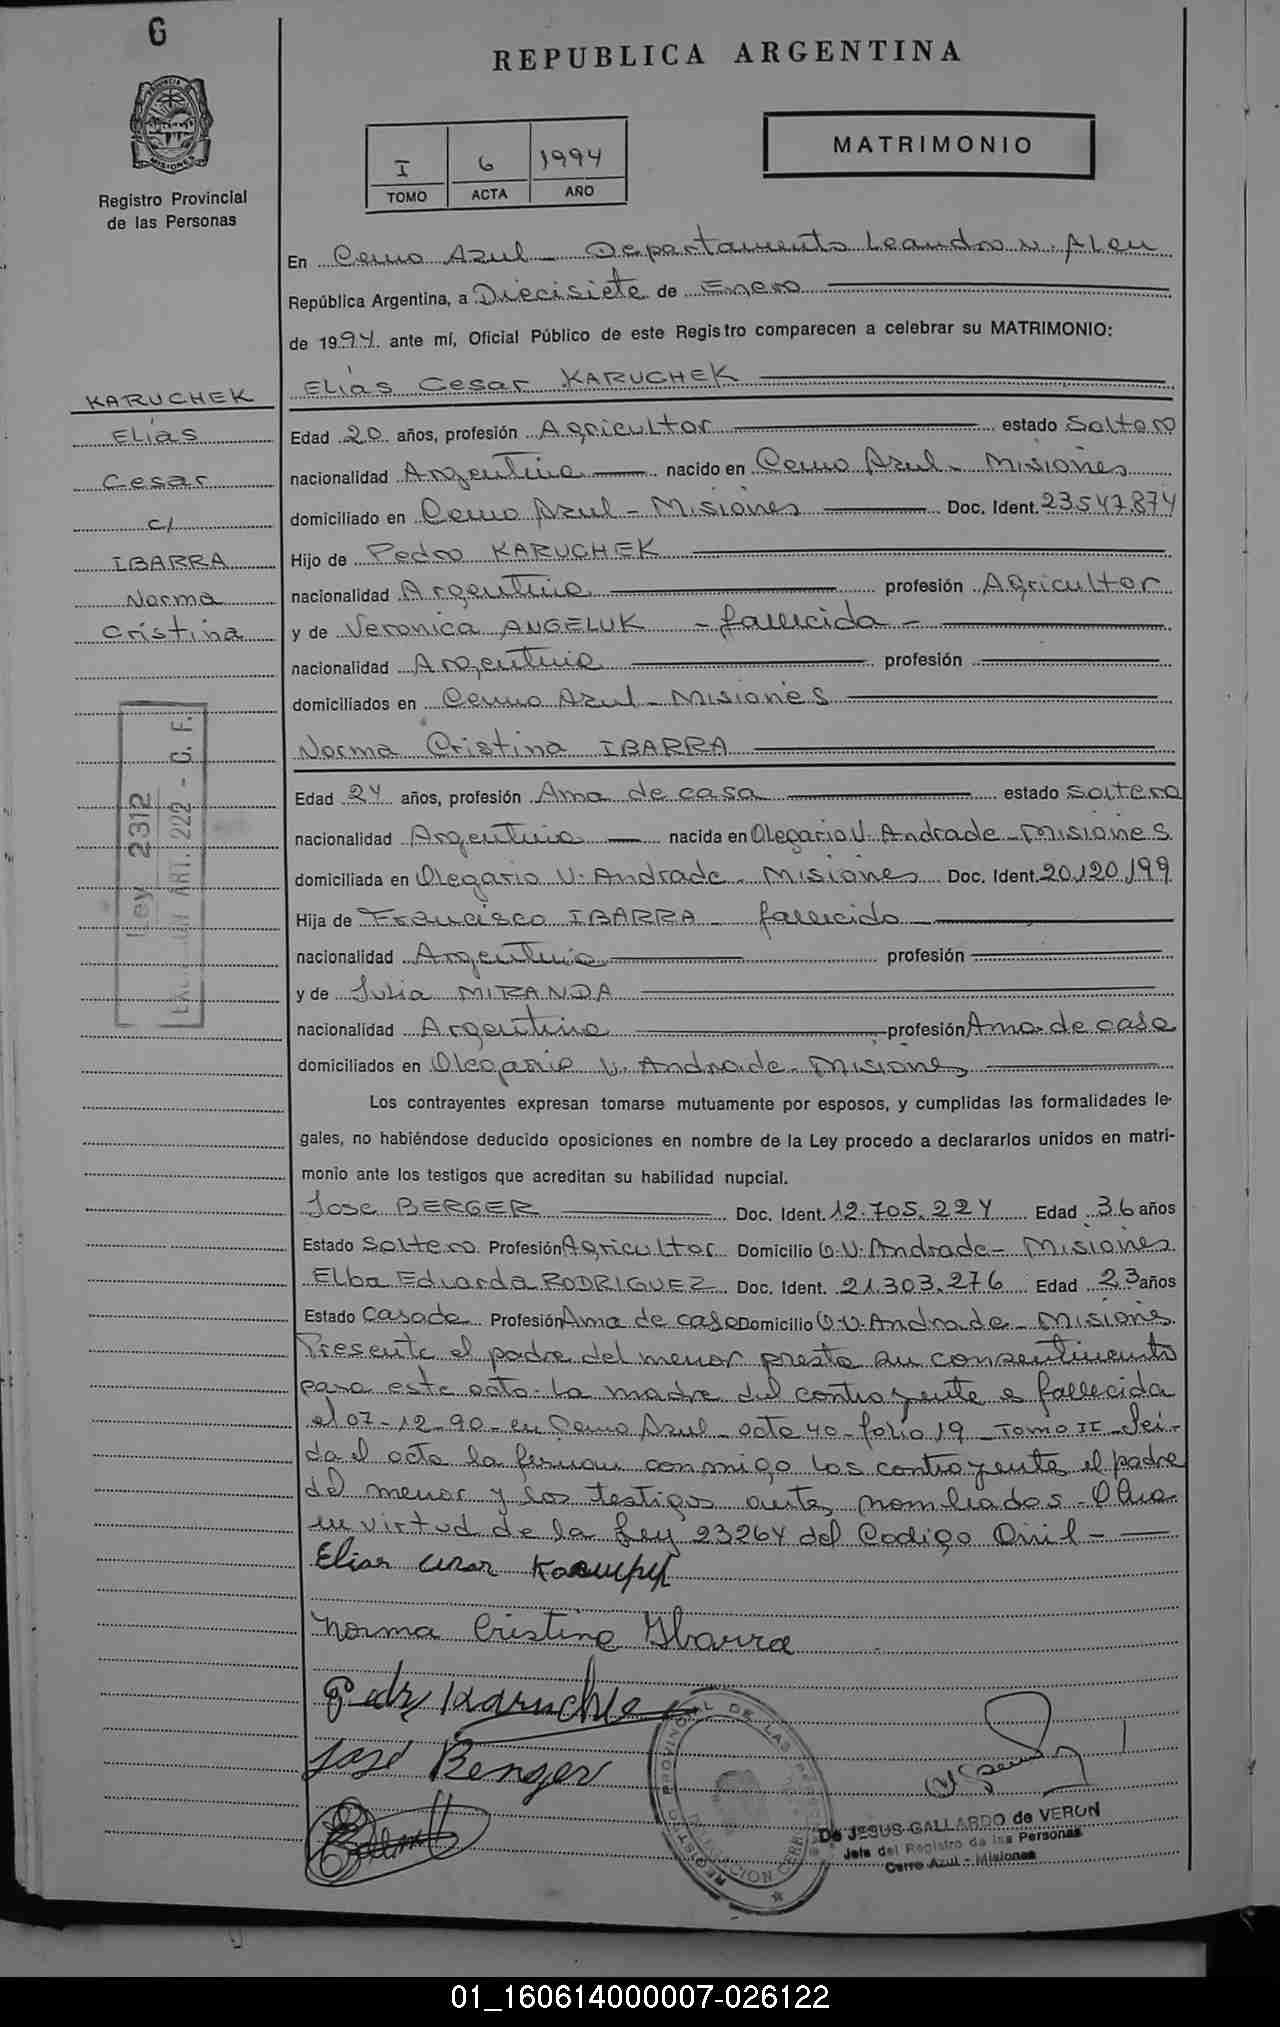 6
REPUBLICA ARGENTINA
MISIONES
Registro Provincial
de las Personas
I 6 1994
TOMO ACTA AÑO
MATRIMONIO
En Cerro Azul - Departamento Leandro N. Alem
República Argentina, a Diecisiete de Enero
de 1994 ante mí, Oficial Público de este Registro comparecen a celebrar su MATRIMONIO:
Elías Cesar KARUCHEK
KARUCHEK
Elías
Cesar
c/
IBARRA
Norma
Cristina
Edad 20 años, profesión Agricultor estado Soltero
nacionalidad Argentina nacido en Cerro Azul - Misiones
domiciliado en Cerro Azul - Misiones Doc. Ident. 23.547.874
Hijo de Pedro KARUCHEK
nacionalidad Argentina profesión Agricultor
y de Veronica ANGELUK - fallecida -
nacionalidad Argentina profesión
domiciliados en Cerro Azul - Misiones
Norma Cristina IBARRA
Ley 2312
ART. 222 - C. F.
Edad 24 años, profesión Ama de casa estado Soltera
nacionalidad Argentina nacida en Olegario V. Andrade - Misiones
domiciliada en Olegario V. Andrade - Misiones Doc. Ident. 20.120.199
Hija de Francisco IBARRA - fallecido
nacionalidad Argentina profesión
y de Julia MIRANDA
nacionalidad Argentina profesión Ama de casa
domiciliados en Olegario V. Andrade - Misiones
Los contrayentes expresan tomarse mutuamente por esposos, y cumplidas las formalidades le-
gales, no habiéndose deducido oposiciones en nombre de la Ley procedo a declararlos unidos en matri-
monio ante los testigos que acreditan su habilidad nupcial.
Jose BERGER Doc. Ident. 12.705.224 Edad 36 años
Estado Soltero Profesión Agricultor Domicilio O.V. Andrade - Misiones
Elba Eduarda RODRIGUEZ Doc. Ident. 21.303.276 Edad 23 años
Estado Casada Profesión Ama de casa Domicilio O.V. Andrade - Misiones
Presente el padre del menor presta su consentimiento
para este acto - La madre del contrayente es fallecida
el 07-12-90 - en Cerro Azul - acta 40 - folio 19 - Tomo II - Leí-
da el acta la firman conmigo los contrayentes el padre
del menor y los testigos antes nombrados -
en virtud de la Ley 23264 del Codigo Civil -
Elias Cesar
Norma Cristina Ibarra
Pedro Karuchek
José Berger
REGISTRO PROVINCIAL DE LAS PERSONAS
De JESUS GALLARDO de VERON
Jefe del Registro de las Personas
Cerro Azul - Misiones
01_160614000007-026122